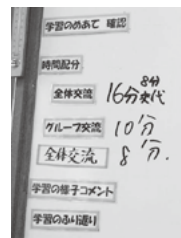 学習のめあて 確認
時間配分
8分
全体交流 16分交代
グループ交流 10分
全体交流 8分.
学習の様子コメント
学習のふり返り